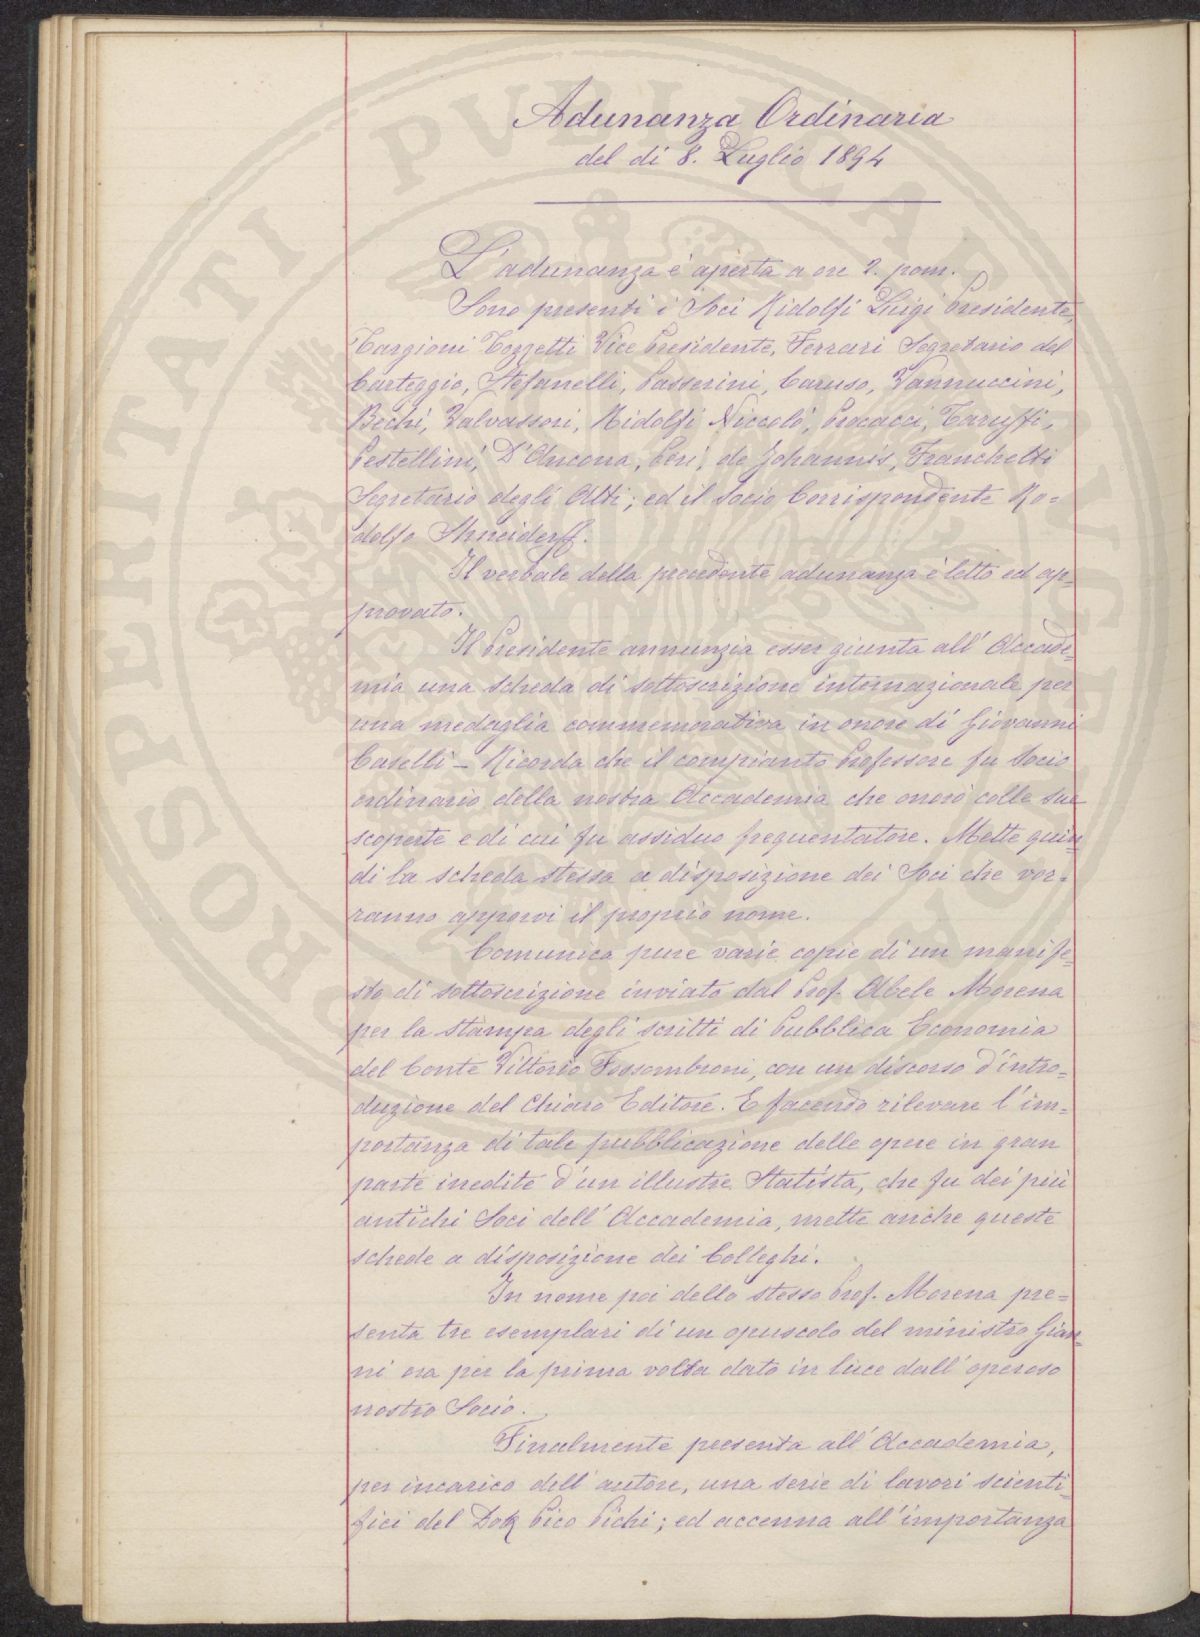 Adunanza Ordinaria
del di 8. Luglio 1894
L'adunanza è aperta a ore 2. pom.
Sono presenti i Soci Ridolfi Luigi Presidente,
Targioni Tozzetti Vice Presidente, Ferrari Segretario del
Carteggio, Stefanelli, Passerini, Caruso, Vannuccini,
Bechi, Valvassori, Ridolfi Niccolò, Procacci, Taruffi,
Pestellini, D'Ancona, Peri, de Johannis, Franchetti
Segretario degli Atti; ed il Socio Corrispondente Ro=
dolfo Shneiderff.
Il verbale della precedente adunanza è letto ed ap=
provato.
Il Presidente annunzia esser giunta all'Accade=
mia una scheda di sottoscrizione internazionale per
una medaglia commemorativa in onore di Giovanni
Caselli – Ricorda che il compianto Professore fu Socio
ordinario della nostra Accademia che onorò colle sue
scoperte e di cui fu assiduo frequentatore. Mette quin=
di la scheda stessa a disposizione dei Soci che vor=
ranno apporvi il proprio nome.
Comunica pure varie copie di un manife=
sto di sottoscrizione inviato dal Prof. Abele Morena
per la stampa degli scritti di Pubblica Economia
del Conte Vittorio Fossombroni, con un discorso d'intro=
duzione del Chiaro Editore. E facendo rilevare l'im=
portanza di tale pubblicazione delle opere in gran
parte inedite d'un illustre Statista, che fu dei più
antichi Soci dell'Accademia, mette anche queste
schede a disposizione dei Colleghi.
In nome poi dello stesso Prof. Morena pre=
senta tre esemplari di un opuscolo del ministro Gian=
ni ora per la prima volta dato in luce dall'operoso
nostro Socio.
Finalmente presenta all'Accademia,
per incarico dell'autore, una serie di lavori scienti=
fici del Dott. Pico Pichi; ed accenna all'importanza
PROSPERITATI PVBLICAE AVGENDAE